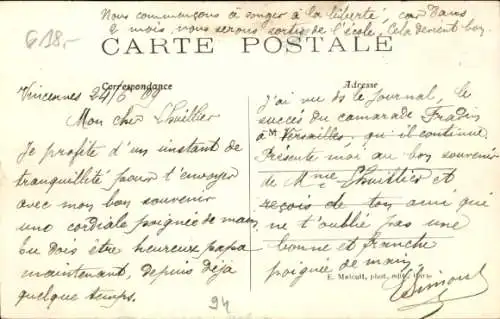 Nous commençons à songer à la liberté, car dans
2 mois, nous serons sortis de l'école. Cela devient bon.
618.-
CARTE POSTALE
Correspondance
Vincennes 24/6
Mon cher Lhuillier
Je profite d'un instant de
tranquillité pour t'envoyer
avec mon bon souvenir
une cordiale poignée de main,
tu dois être heureux papa
maintenant, depuis déjà
quelque temps.
94
Adresse
J'ai vu ds le Journal, le
succès du camarade Fradin
à Versailles, qu'il continue
M
Présente moi au bon souvenir
de Mme Lhuillier et
reçois de ton ami qui
ne t'oublie pas une
bonne et franche
poignée de main
E. Malcuit, phot. édit.
Simon